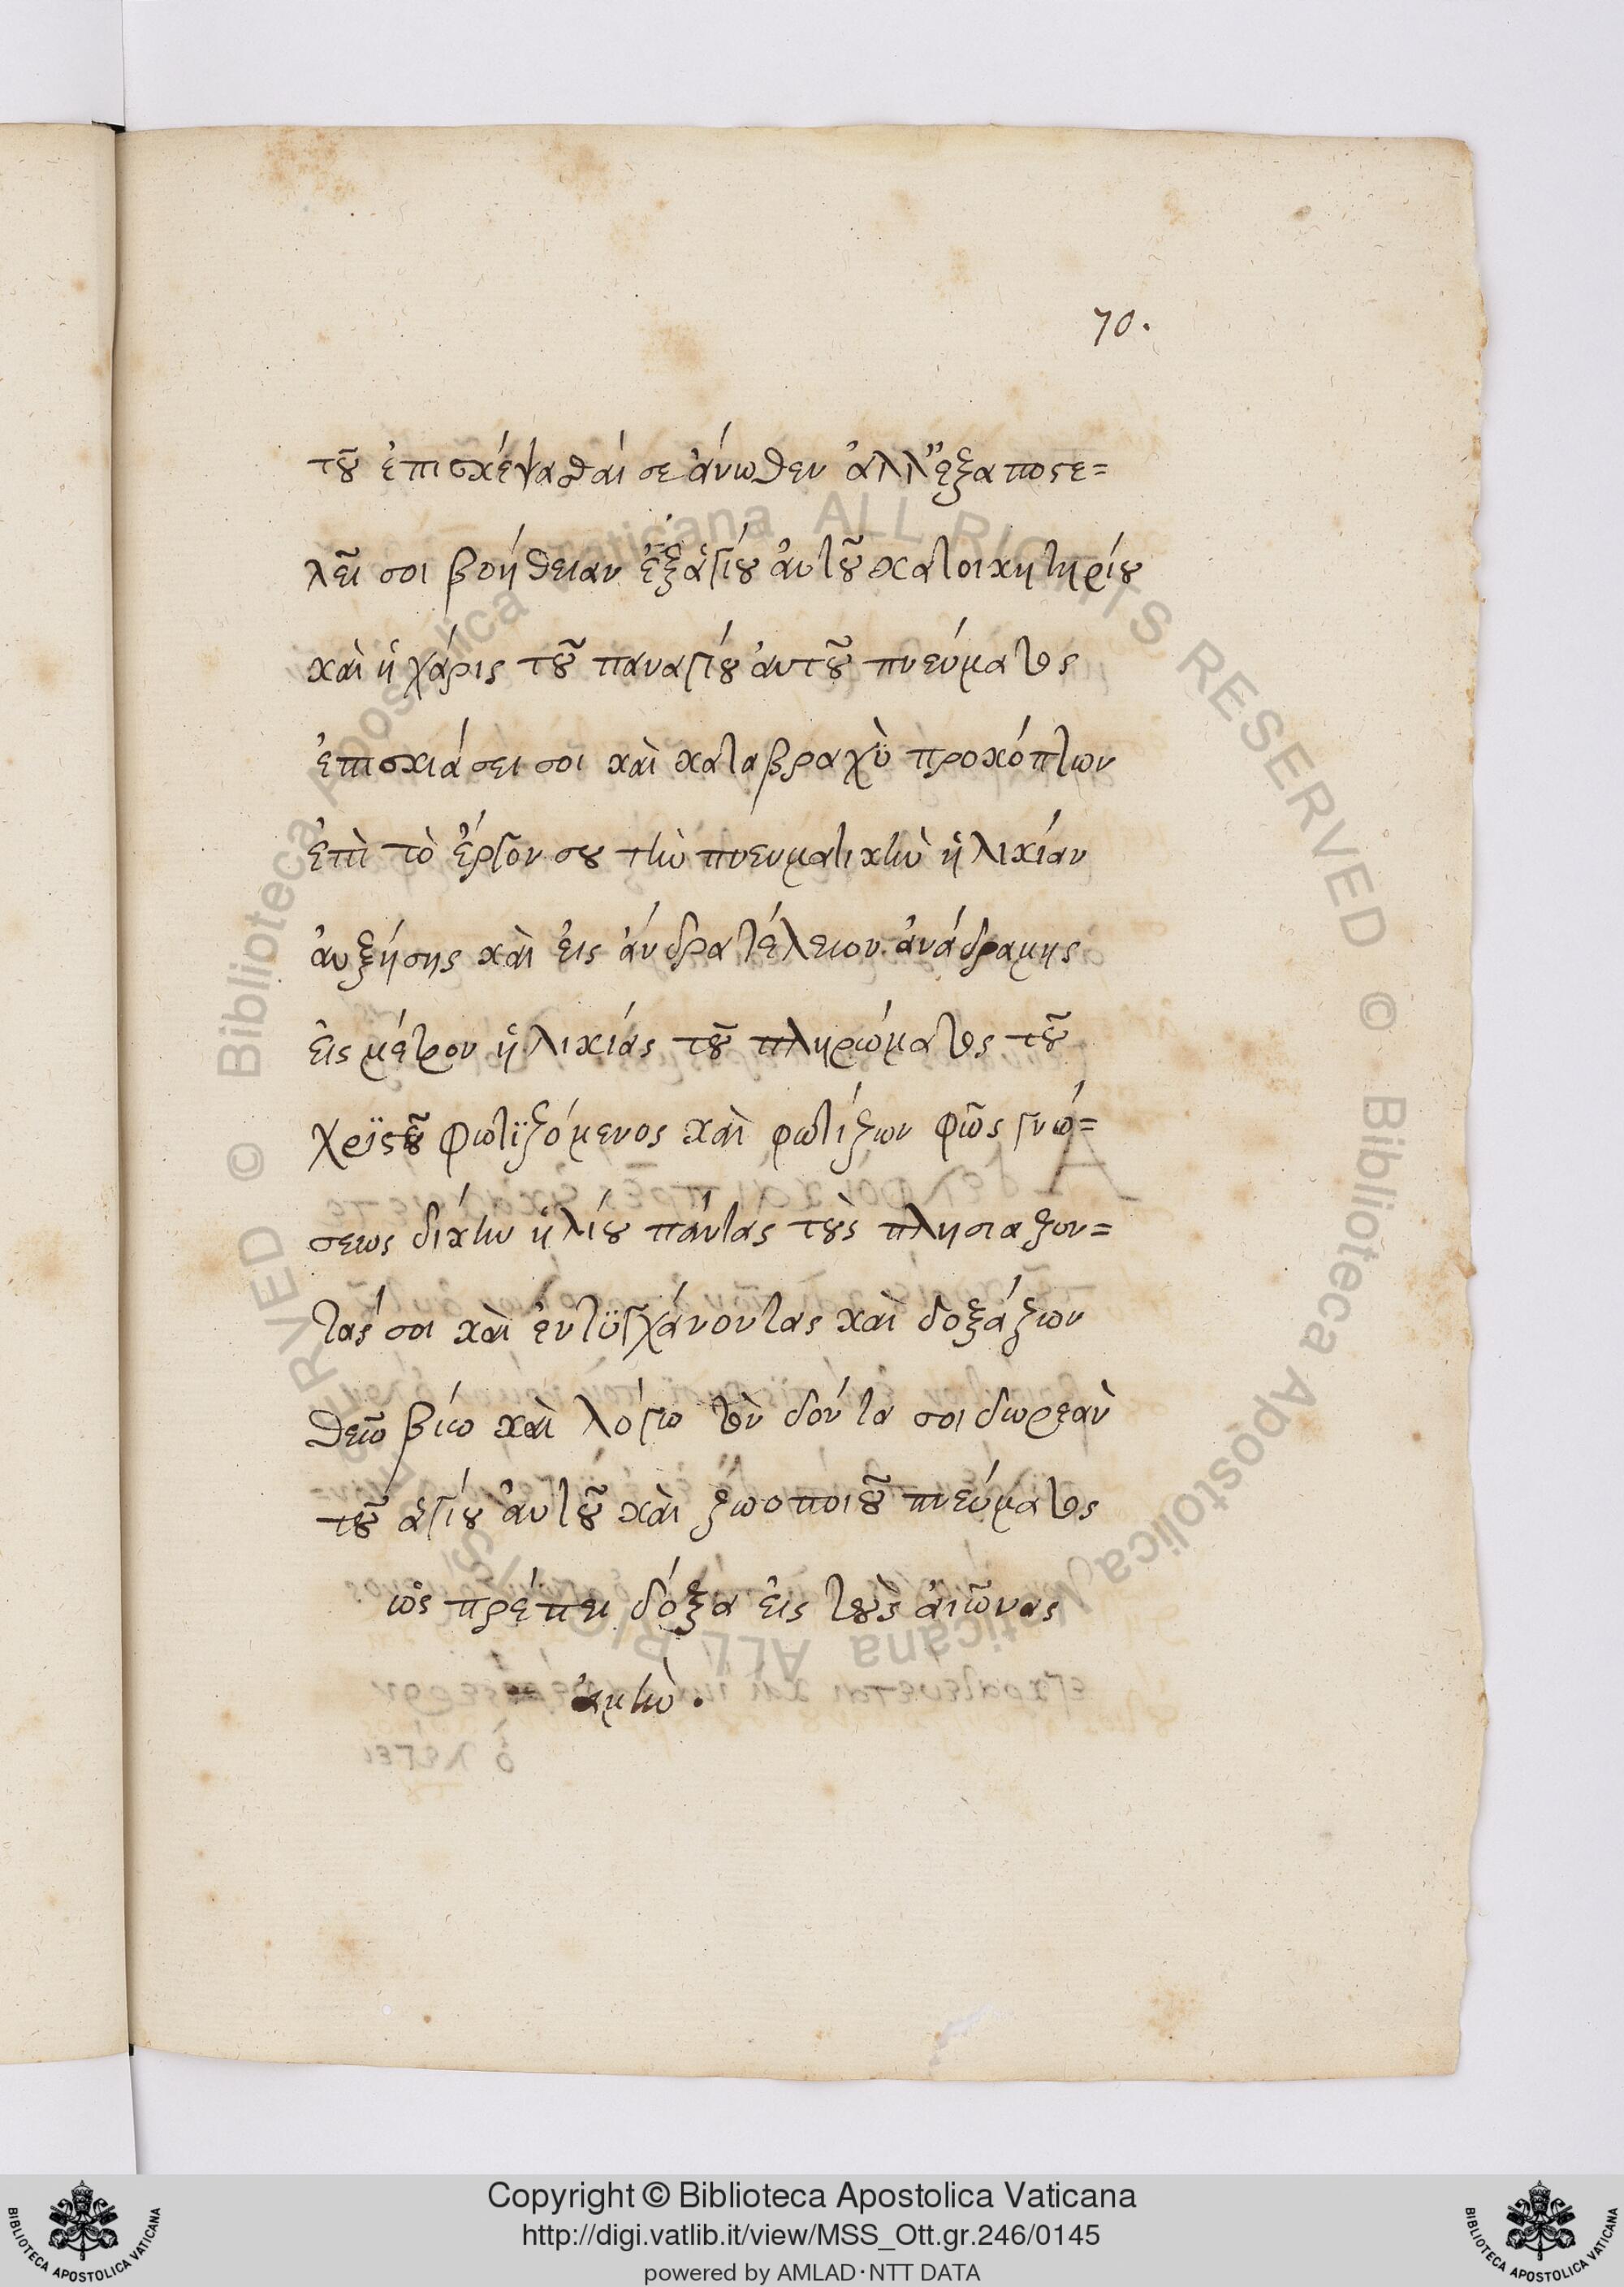 70.
τοῦ ἐπισκέψασθαί σε ἄνωθεν ἀλλ' ἐξαποστε=
λεῖ σοι βοήθειαν ἐξ ἁγίου αὐτοῦ κατοικητηρίου
καὶ ἡ χάρις τοῦ παναγίου αὐτοῦ πνεύματος
ἐπισκιάσει σοι καὶ καταβραχὺ προκόπτων
ἐπὶ τὸ ἔργον σου τὴν πνευματικὴν ἡλικίαν
αὐξήσης καὶ εἰς ἄνδρα τέλειον ἀνάδραμης
εἰς μέτρον ἡλικίάς τοῦ πληρώματος τοῦ
χρϊστοῦ φωτϊζόμενος καὶ φωτίζων φῶς γνώ=
σεως δίκην ἡλίου πάντας τοὺς πλησιαζον=
τάς σοι καὶ ἐντϋγχάνοντας καὶ δοξάζων
θείω βίω καὶ λόγω τὸν δόντα σοι δωρεὰν
τοῦ ἁγίου αὐτοῦ καὶ ζωοποιοῦ πνεύματος
ὡς πρέπει δόξα εἰς τοὺς αἰῶνας
ἀμὴν.
Copyright © Biblioteca Apostolica Vaticana
http://digi.vatlib.it/view/MSS_Ott.gr.246/0145
powered by AMLAD·NTT DATA
BIBLIOTECA APOSTOLICA VATICANA
BIBLIOTECA APOSTOLICA VATICANA
© Biblioteca Apostolica Vaticana ALL RIGHTS RESERVED
© Biblioteca Apostolica Vaticana ALL RIGHTS RESERVED